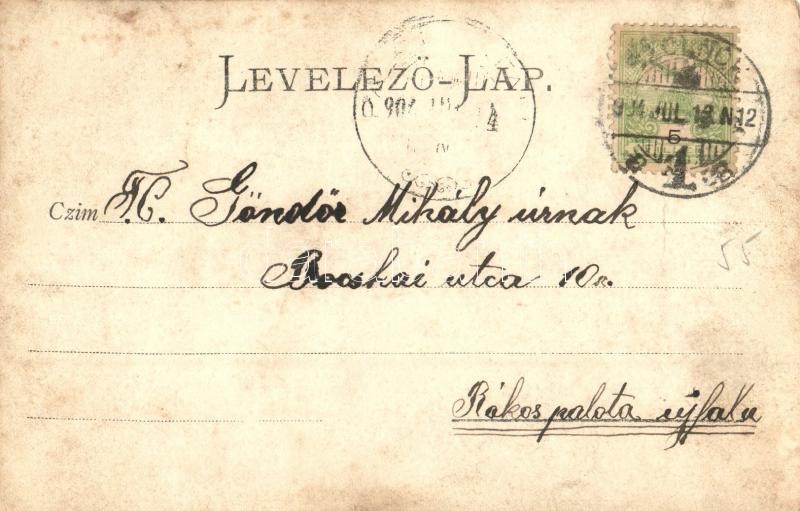 LEVELEZŐ-LAP.
904 JUL. 13. N12
5
4
1
Czim T. C. Göndör Mihály úrnak
Bocskai utca 10
55
Rákos palota újfalu